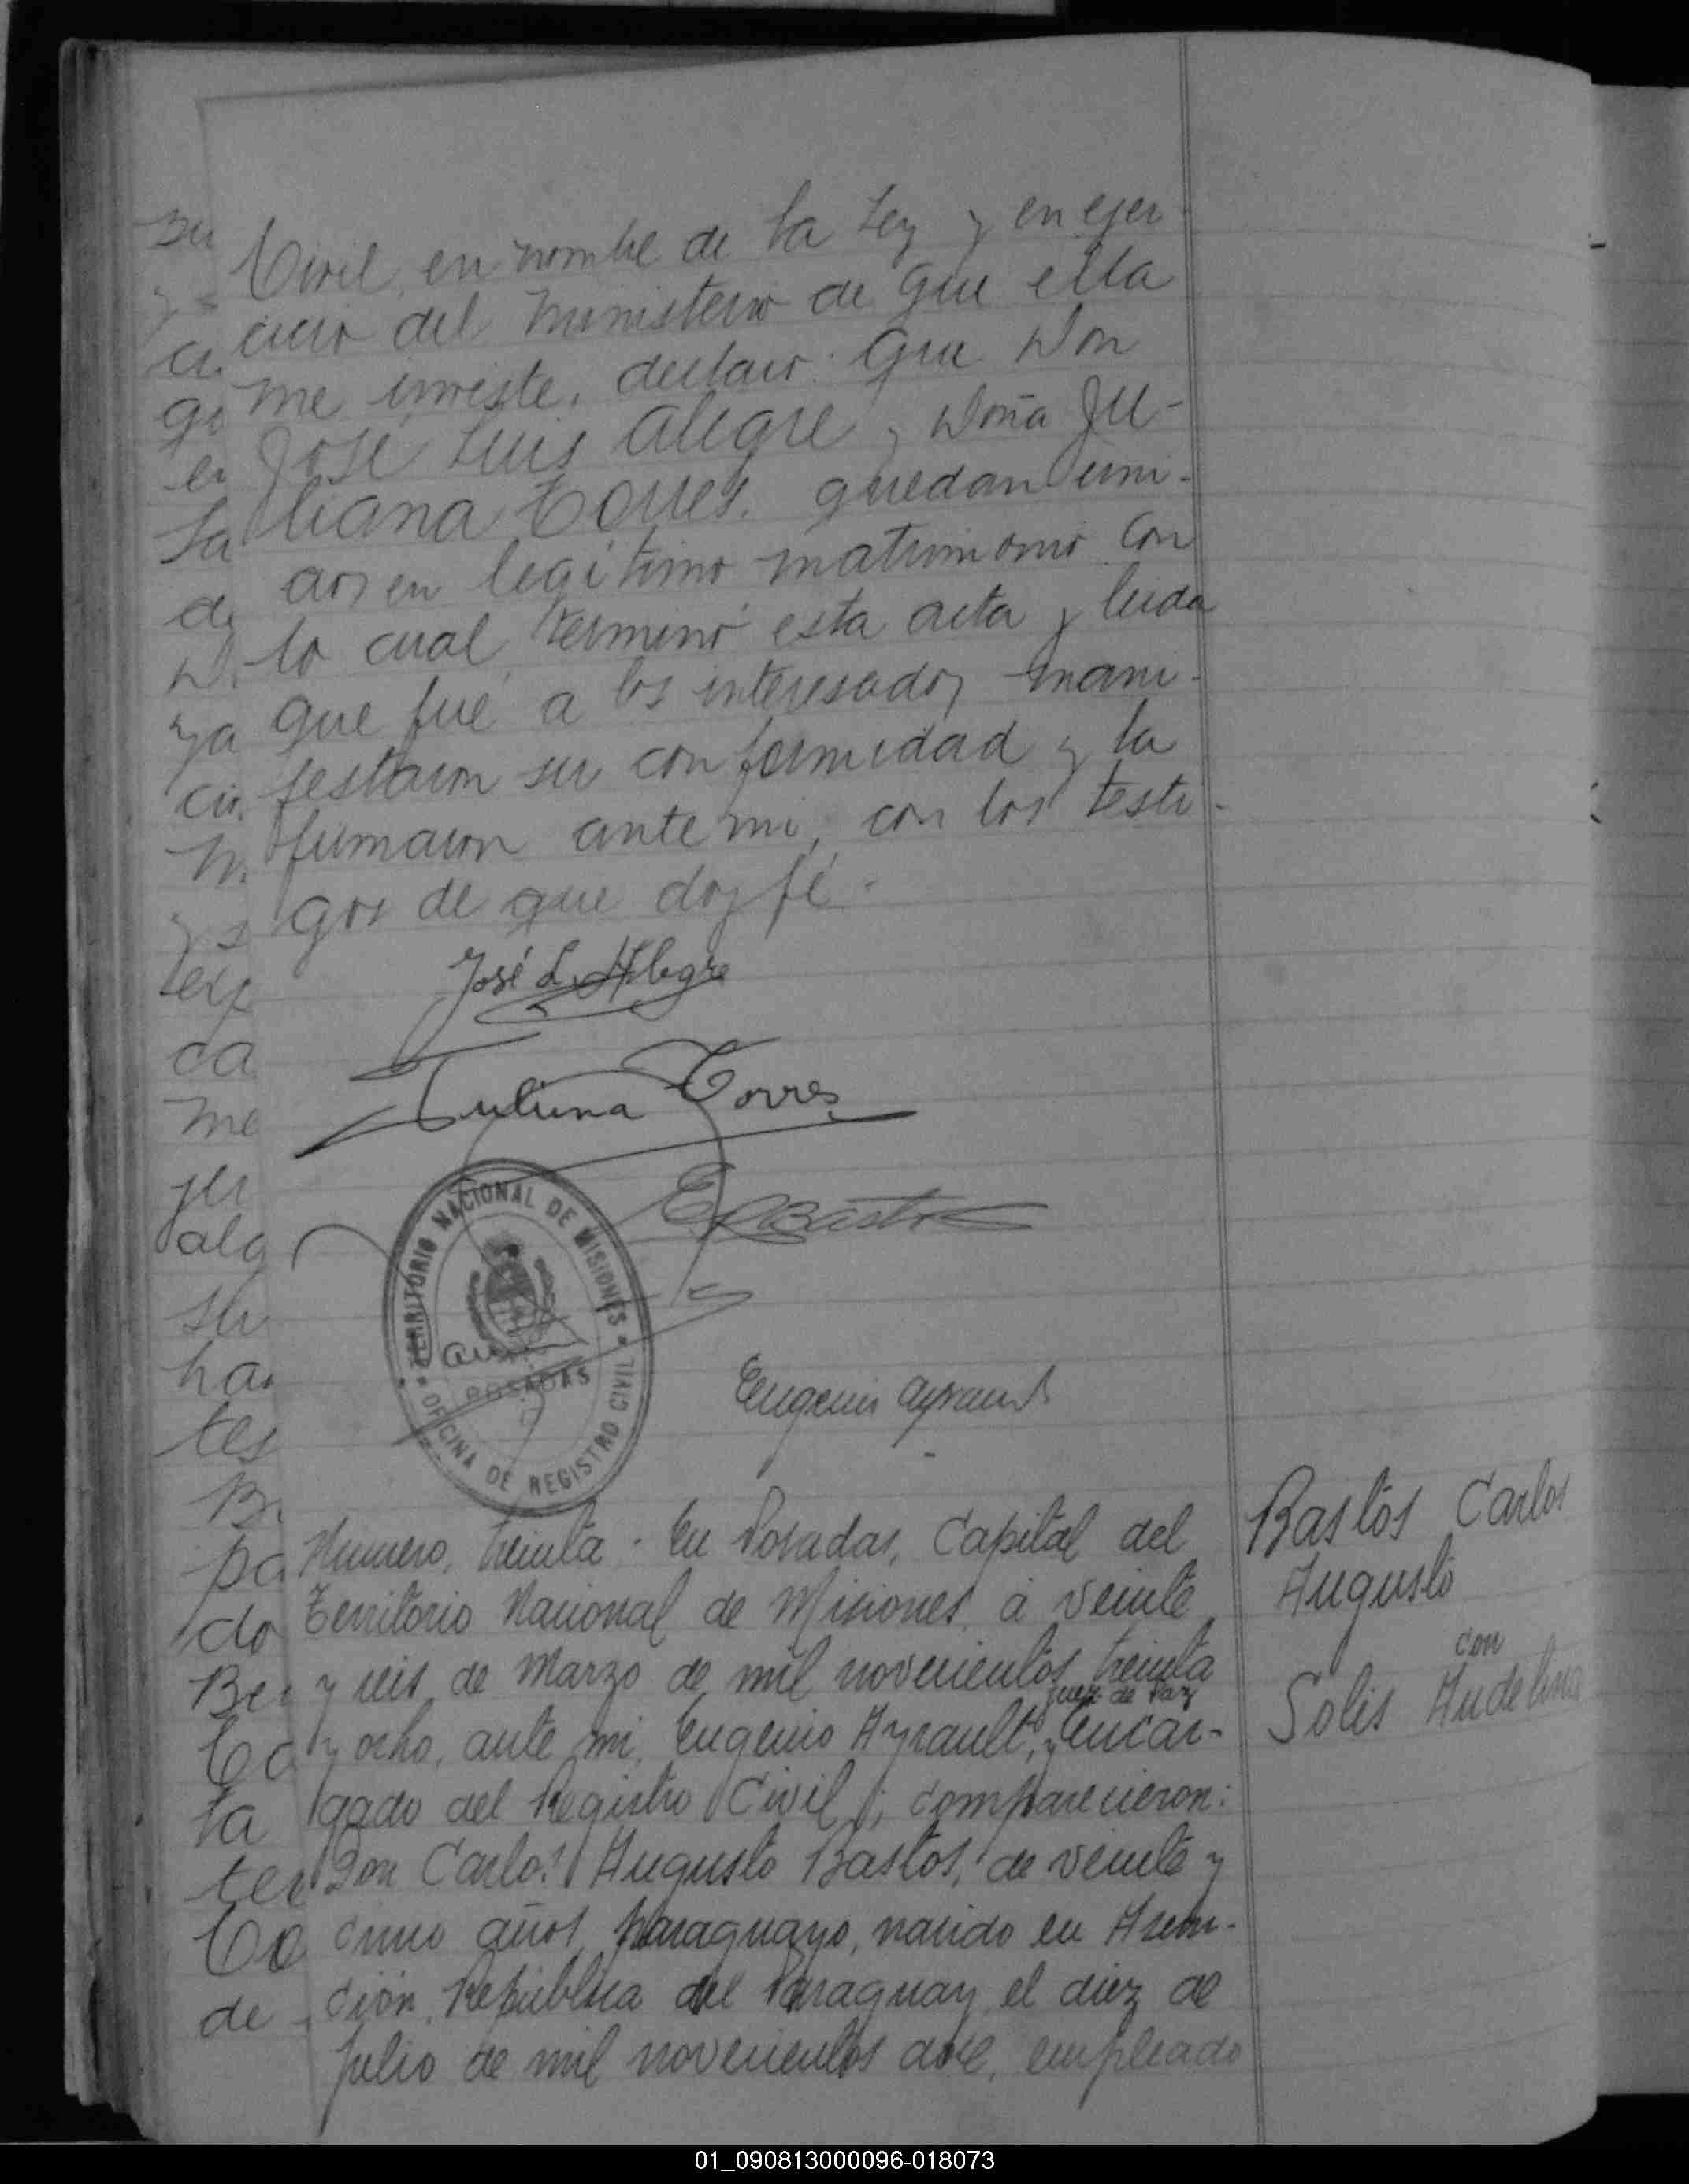 Civil, en nombre de la Ley y en ejer
cicio del Ministerio de que ella
me inviste, declaro: Que Don
José Luis Alegre y Doña Ju-
liana Torres, quedan uni-
dos en legítimo matrimonio con
lo cual, terminó esta acta y leida
que fué a los interesados mani-
festaron su conformidad y la
firmaron ante mi, con los testi-
gos de que doy fé.-
José L. Alegre
Juliana Torres
E Bastos
TERRITORIO NACIONAL DE MISIONES
POSADAS
OFICINA DE REGISTRO CIVIL
Eugenio Ayrault
Numero, treinta. En Posadas, Capital del
Territorio Nacional de Misiones, a veinte
y seis de Marzo de mil novecientos treinta
Juez de Paz
y ocho, ante mi, Eugenio Ayrault, y Encar-
gado del Registro Civil; comparecieron:
Don Carlos Augusto Bastos, de veinte y
cinco años, paraguayo, nacido en Asun-
ción, República del Paraguay, el diez de
Julio de mil novecientos doce, empleado
Bastos Carlos
Augusto
con
Solis Audelina
su
en
la
ya
ys
ca
me
alg
su
tes
pa
do
la
de
01_090813000096-018073